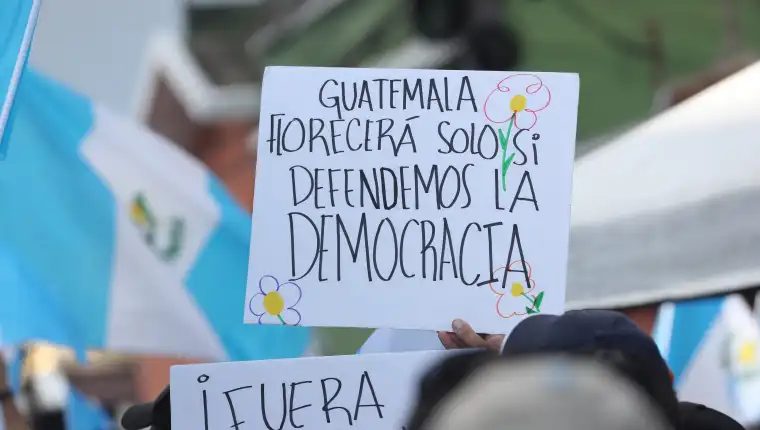 GUATEMALA
FlORECERÁ SOLO SI
DEFENDEMOS LA
DEMOCRACIA
¡FUERA